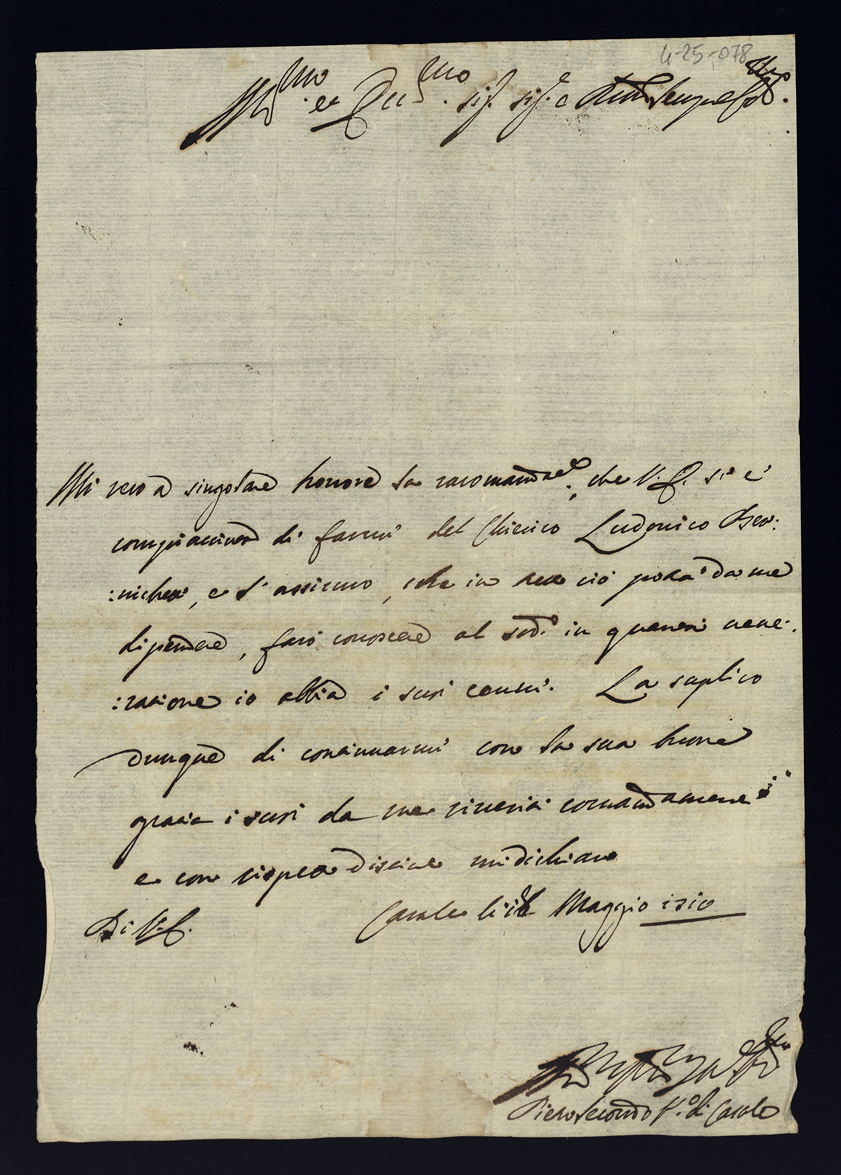 4-25-078
Ill.mo et Ecc.mo Sig. Sig.e
Mi reco a singolare honore la racomandat.e, che V. E. si è
compiacciuta di farmi del Chierico Ludovico
e l'assicuro, che in tutto ciò potrà da me
dipendere, farò conoscere al sud.o in quanta vene-
:ratione io abbia i suoi cenni. La suplico
dunque di continuarmi con la sua buona
gratia i suoi da me riveriti comandamenti
e con rispetto mi dichiaro
Di V. E. Casale li Maggio 1710
Pietro Secondo V.o di Casale